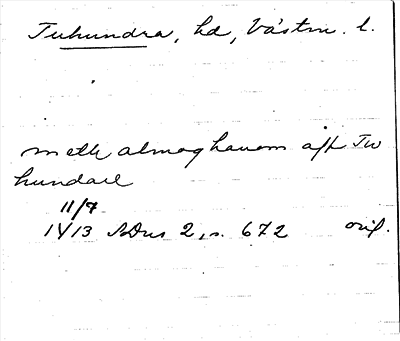 Tuhundra, hd, Västm. l.
meth almoghanom aff Tw
hundare
11/9
1413 SDns 2, s. 672 orig.